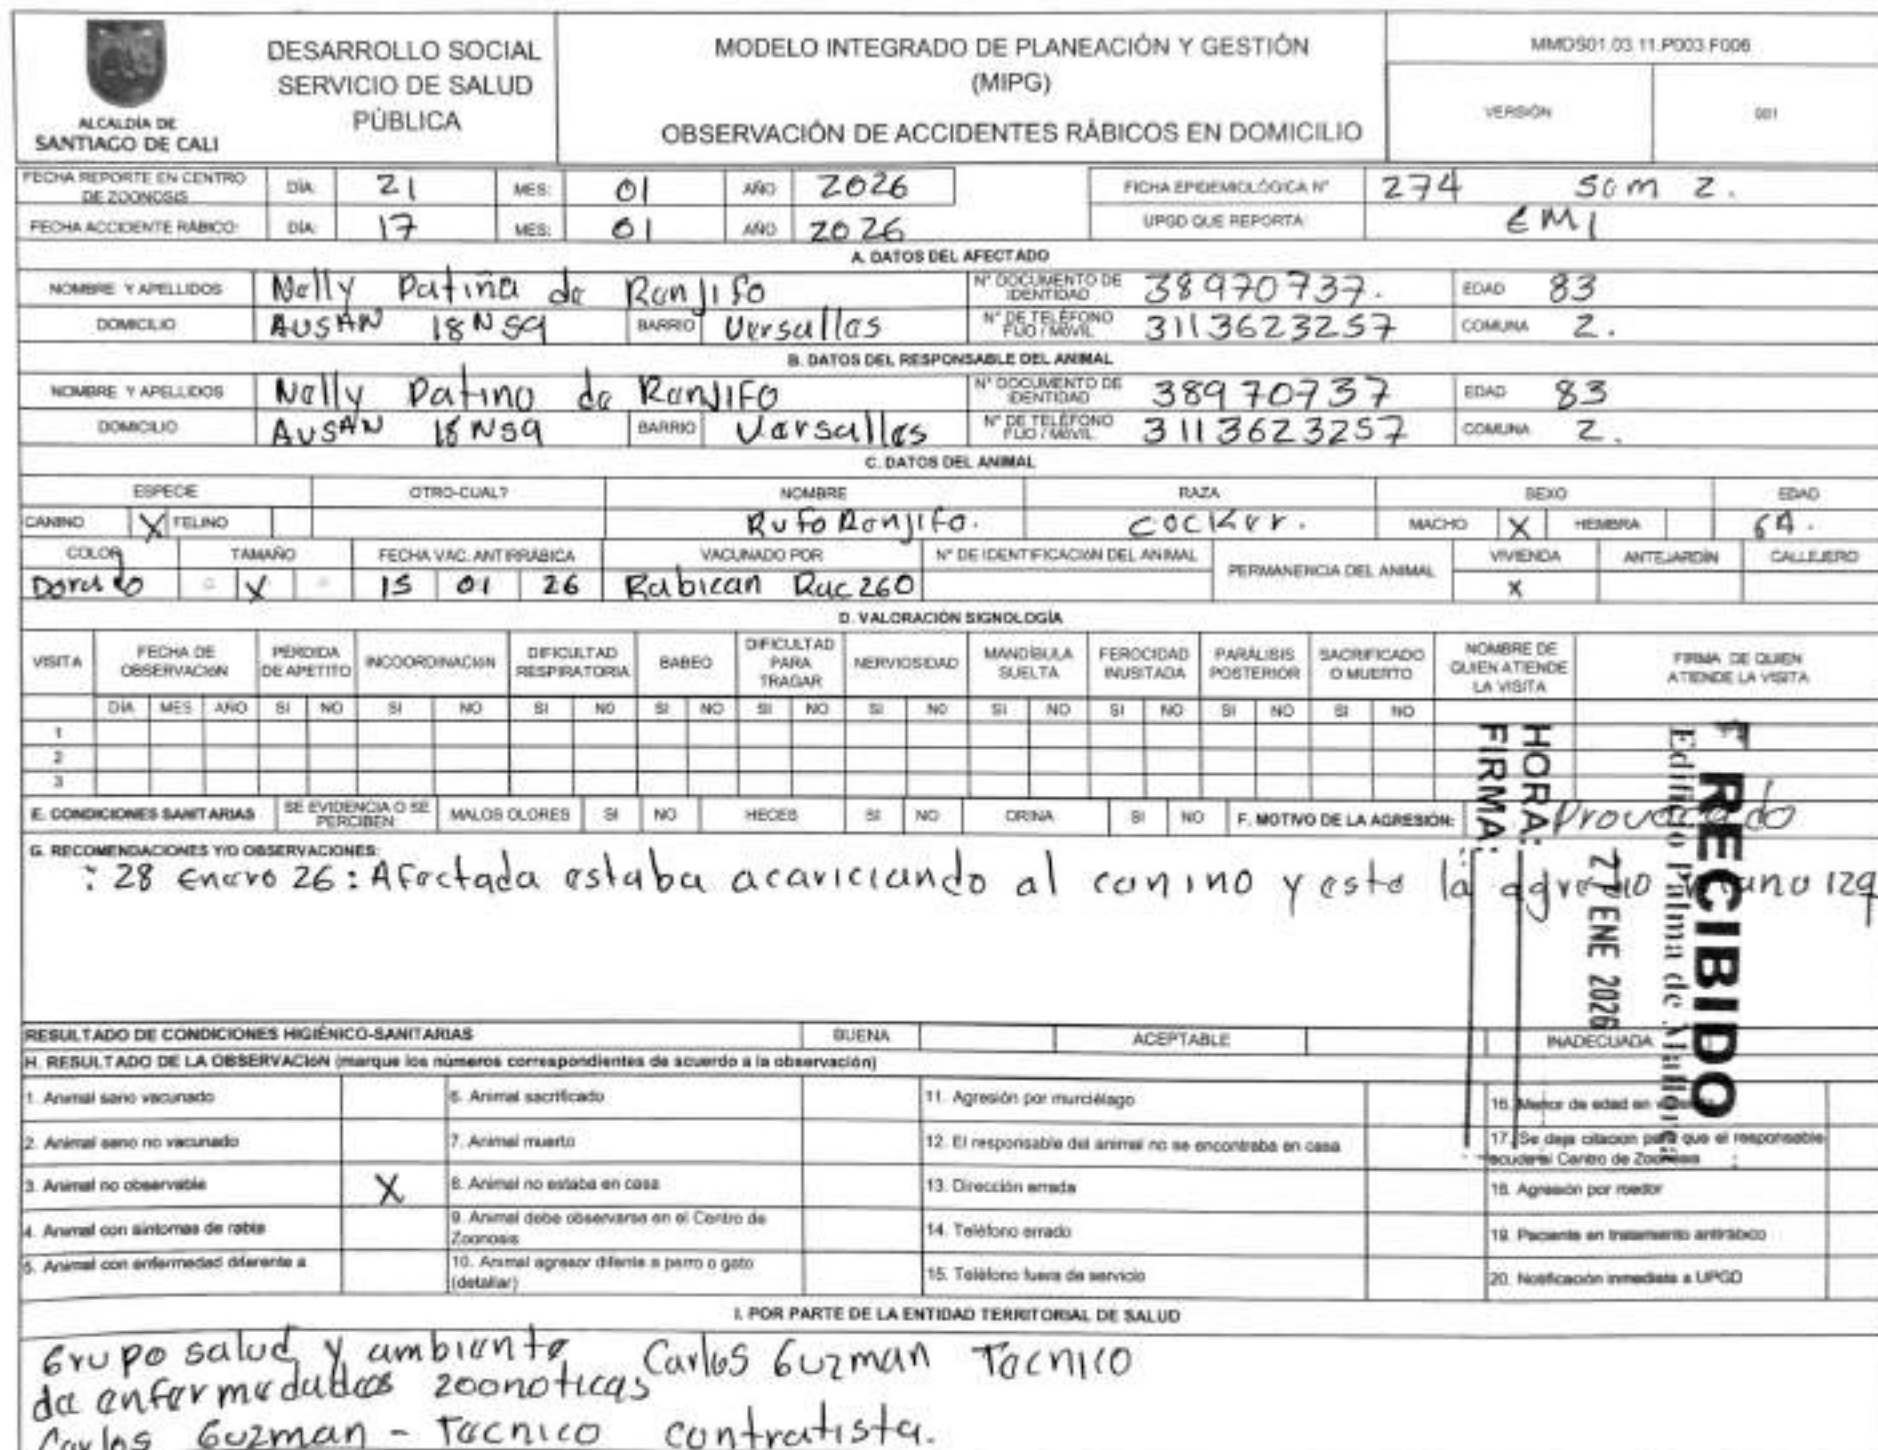 ALCALDÍA DE
SANTIAGO DE CALI
DESARROLLO SOCIAL
SERVICIO DE SALUD
PÚBLICA
MODELO INTEGRADO DE PLANEACIÓN Y GESTIÓN
(MIPG)
OBSERVACIÓN DE ACCIDENTES RÁBICOS EN DOMICILIO
MMDS01.03.11.P003.F006
VERSIÓN 001
FECHA REPORTE EN CENTRO DE ZOONOSIS DÍA: 21 MES: 01 AÑO 2026 FICHA EPIDEMIOLÓGICA N° 274 Sem 2.
FECHA ACCIDENTE RÁBICO: DÍA: 17 MES: 01 AÑO 2026 UPGD QUE REPORTA: EMI
A. DATOS DEL AFECTADO
NOMBRE Y APELLIDOS Nelly Patiña de Renjifo N° DOCUMENTO DE IDENTIDAD 38970737. EDAD 83
DOMICILIO AV5AN 18N59 BARRIO Versalles N° DE TELÉFONO FIJO / MÓVIL 3113623257 COMUNA 2.
B. DATOS DEL RESPONSABLE DEL ANIMAL
NOMBRE Y APELLIDOS Nelly Patino de RenJIFO N° DOCUMENTO DE IDENTIDAD 38970737 EDAD 83
DOMICILIO AV5AN 18N59 BARRIO Versalles N° DE TELÉFONO FIJO / MÓVIL 3113623257 COMUNA 2.
C. DATOS DEL ANIMAL
ESPECIE OTRO-CUAL? NOMBRE RAZA SEXO EDAD
CANINO X FELINO Rufo Renjifo. COCKER. MACHO X HEMBRA 6A.
COLOR TAMAÑO FECHA VAC. ANTIRRÁBICA VACUNADO POR N° DE IDENTIFICACIóN DEL ANIMAL PERMANENCIA DEL ANIMAL VIVIENDA ANTEJARDÍN CALLEJERO
Dorado X 15 01 26 Rabican Rac260 X
D. VALORACIÓN SIGNOLOGÍA
VISITA FECHA DE OBSERVACIóN PÉRDIDA DE APETITO INCOORDINACIóN DIFICULTAD RESPIRATORIA BABEO DIFICULTAD PARA TRAGAR NERVIOSIDAD MANDÍBULA SUELTA FEROCIDAD INUSITADA PARÁLISIS POSTERIOR SACRIFICADO O MUERTO NOMBRE DE QUIEN ATIENDE LA VISITA FIRMA DE QUIEN ATIENDE LA VISITA
DÍA MES AÑO SI NO SI NO SI NO SI NO SI NO SI NO SI NO SI NO SI NO SI NO
1
2
3
E. CONDICIONES SANITARIAS SE EVIDENCIA O SE PERCIBEN: MALOS OLORES SI NO HECES SI NO ORINA SI NO F. MOTIVO DE LA AGRESIÓN: Provocado
G. RECOMENDACIONES Y/O OBSERVACIONES:
: 28 Enero 26: Afectada estaba acariciando al canino y este la agredio mano izq
RECIBIDO
Edificio Palma de
27 ENE 2026
HORA:
FIRMA:
RESULTADO DE CONDICIONES HIGIÉNICO-SANITARIAS BUENA ACEPTABLE INADECUADA
H. RESULTADO DE LA OBSERVACIóN (marque los números correspondientes de acuerdo a la observación)
1. Animal sano vacunado 6. Animal sacrificado 11. Agresión por murciélago 16. Menor de edad en
2. Animal sano no vacunado 7. Animal muerto 12. El responsable del animal no se encontraba en casa 17. Se deja citacion para que el responsable acuda al Centro de Zoonosis
3. Animal no observable X 8. Animal no estaba en casa 13. Dirección errada 18. Agresión por roedor
4. Animal con síntomas de rabia 9. Animal debe observarse en el Centro de Zoonosis 14. Teléfono errado 19. Paciente en tratamiento antirrábico
5. Animal con enfermedad diferente a 10. Animal agresor difente a perro o gato (detallar) 15. Teléfono fuera de servicio 20. Notificación inmediata a UPGD
I. POR PARTE DE LA ENTIDAD TERRITORIAL DE SALUD
Grupo salud y ambiente Carlos Guzman Tecnico
de enfermedades zoonoticas
Carlos Guzman - Tecnico contratista.